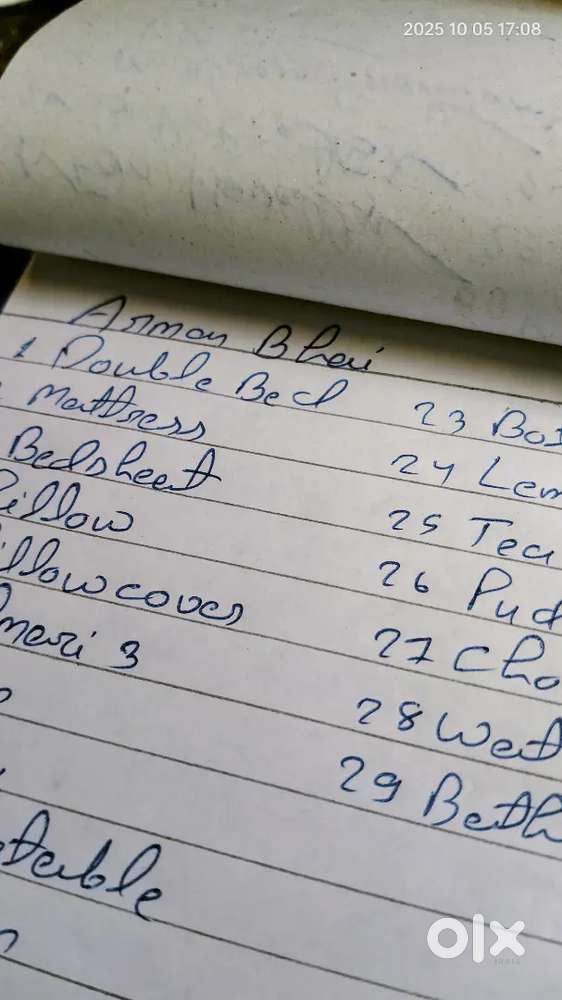 2025 10 05 17:08
Arman Bhai
1 Double Bed
Mattress
Bedsheet
Pillow
illow cover
mari 3
table
23 Bo
24 Lem
25 Tea
26 Pud
27 Cho
28 Wat
29 Bath
olx
INDIA